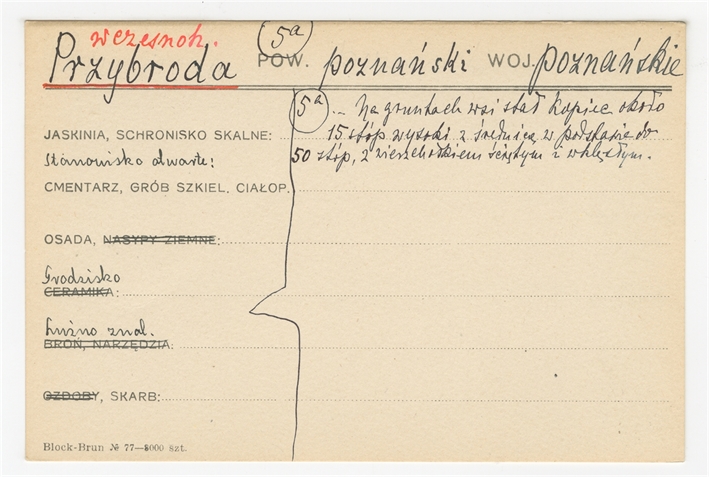 wczesnoh.
5a
Przybroda POW. poznański WOJ. poznańskie
5a ... Na gruntach wsi stał kopiec około
JASKINIA, SCHRONISKO SKALNE: 15 stóp wysoki z średnicą w podstawie do
Stanowisko otwarte: 50 stóp, z wierzchołkiem ściętym i wklęsłym.
CMENTARZ, GRÓB SZKIEL. CIAŁOP.
OSADA, NASYPY ZIEMNE:
Grodzisko
CERAMIKA:
Luźno znal.
BROŃ, NARZĘDZIA:
OZDOBY, SKARB:
Block-Brun № 77—8000 szt.